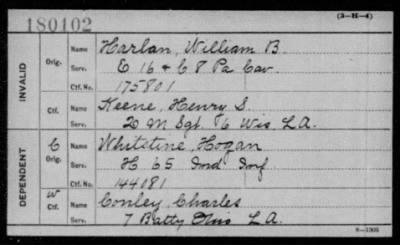 180102
(3-H-4)
INVALID
Orig.
Name Harlan, William B.
Serv. E 16 & C 8 Pa Cav.
Ctf. No. 175801
Ctf.
Name Keene, Henry S.
Serv. 20 M Sgt. 6 Wis L.A.
DEPENDENT
C
Orig.
Name Whitstine, Hogan
Serv. H 65 Ind Inf
Ctf. No. 144081
W
Ctf.
Name Conley, Charles
Serv. 7 Batty Ohio L.A.